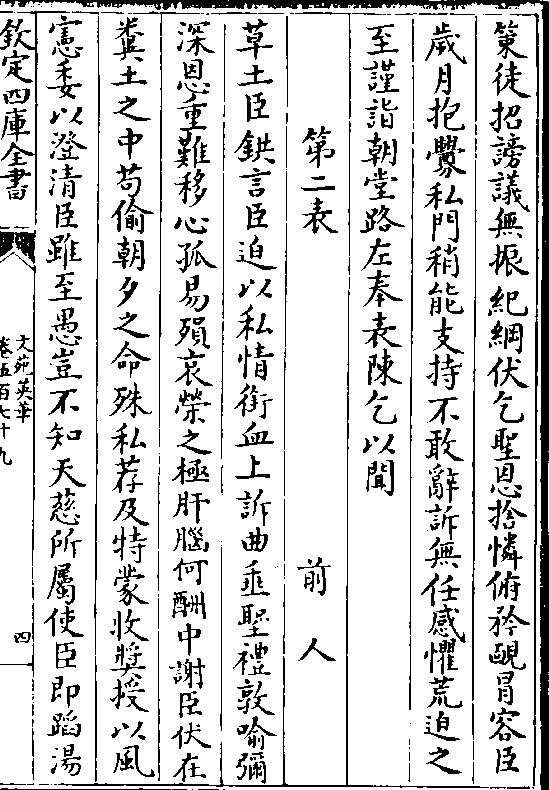 策徒招謗議無振紀綱伏乞聖恩捨憐俯矜覼冒容臣
歲月抱釁私門稍能支持不敢辭訴無任感懼荒迫之
至謹詣朝堂路左奉表陳乞以聞
第二表 前人
草土臣鉷言臣迫以私情銜血上訴曲垂聖禮敦喻彌
深恩重難移心孤易殞哀榮之極肝腦何酬中謝臣伏在
糞土之中苟偷朝夕之命殊私荐及特蒙收奬授以風
憲委以澄清臣雖至愚豈不知天慈所屬使臣即蹈湯
欽定四庫全書
文苑英華
卷五百七十九
四